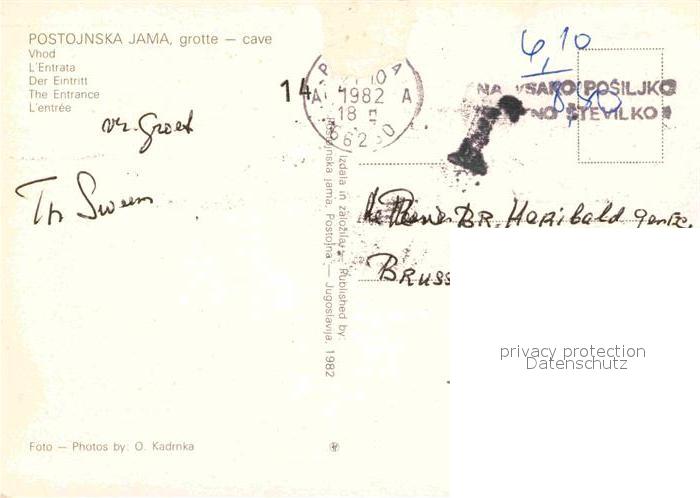 POSTOJNSKA JAMA, grotte — cave
Vhod
L'Entrata
Der Eintritt
The Entrance
L'entrée
14
A 1982 A
18
66230
4,10
8,80
NA VSAKO POŠILJKO
ŠTEVILKO
vr. Groet
Izdala in založila — Published by:
Postojnska jama, Postojna — Jugoslavija, 1982
BR. Haribald
BRUSS
privacy protection
Datenschutz
Foto — Photos by: O. Kadrnka